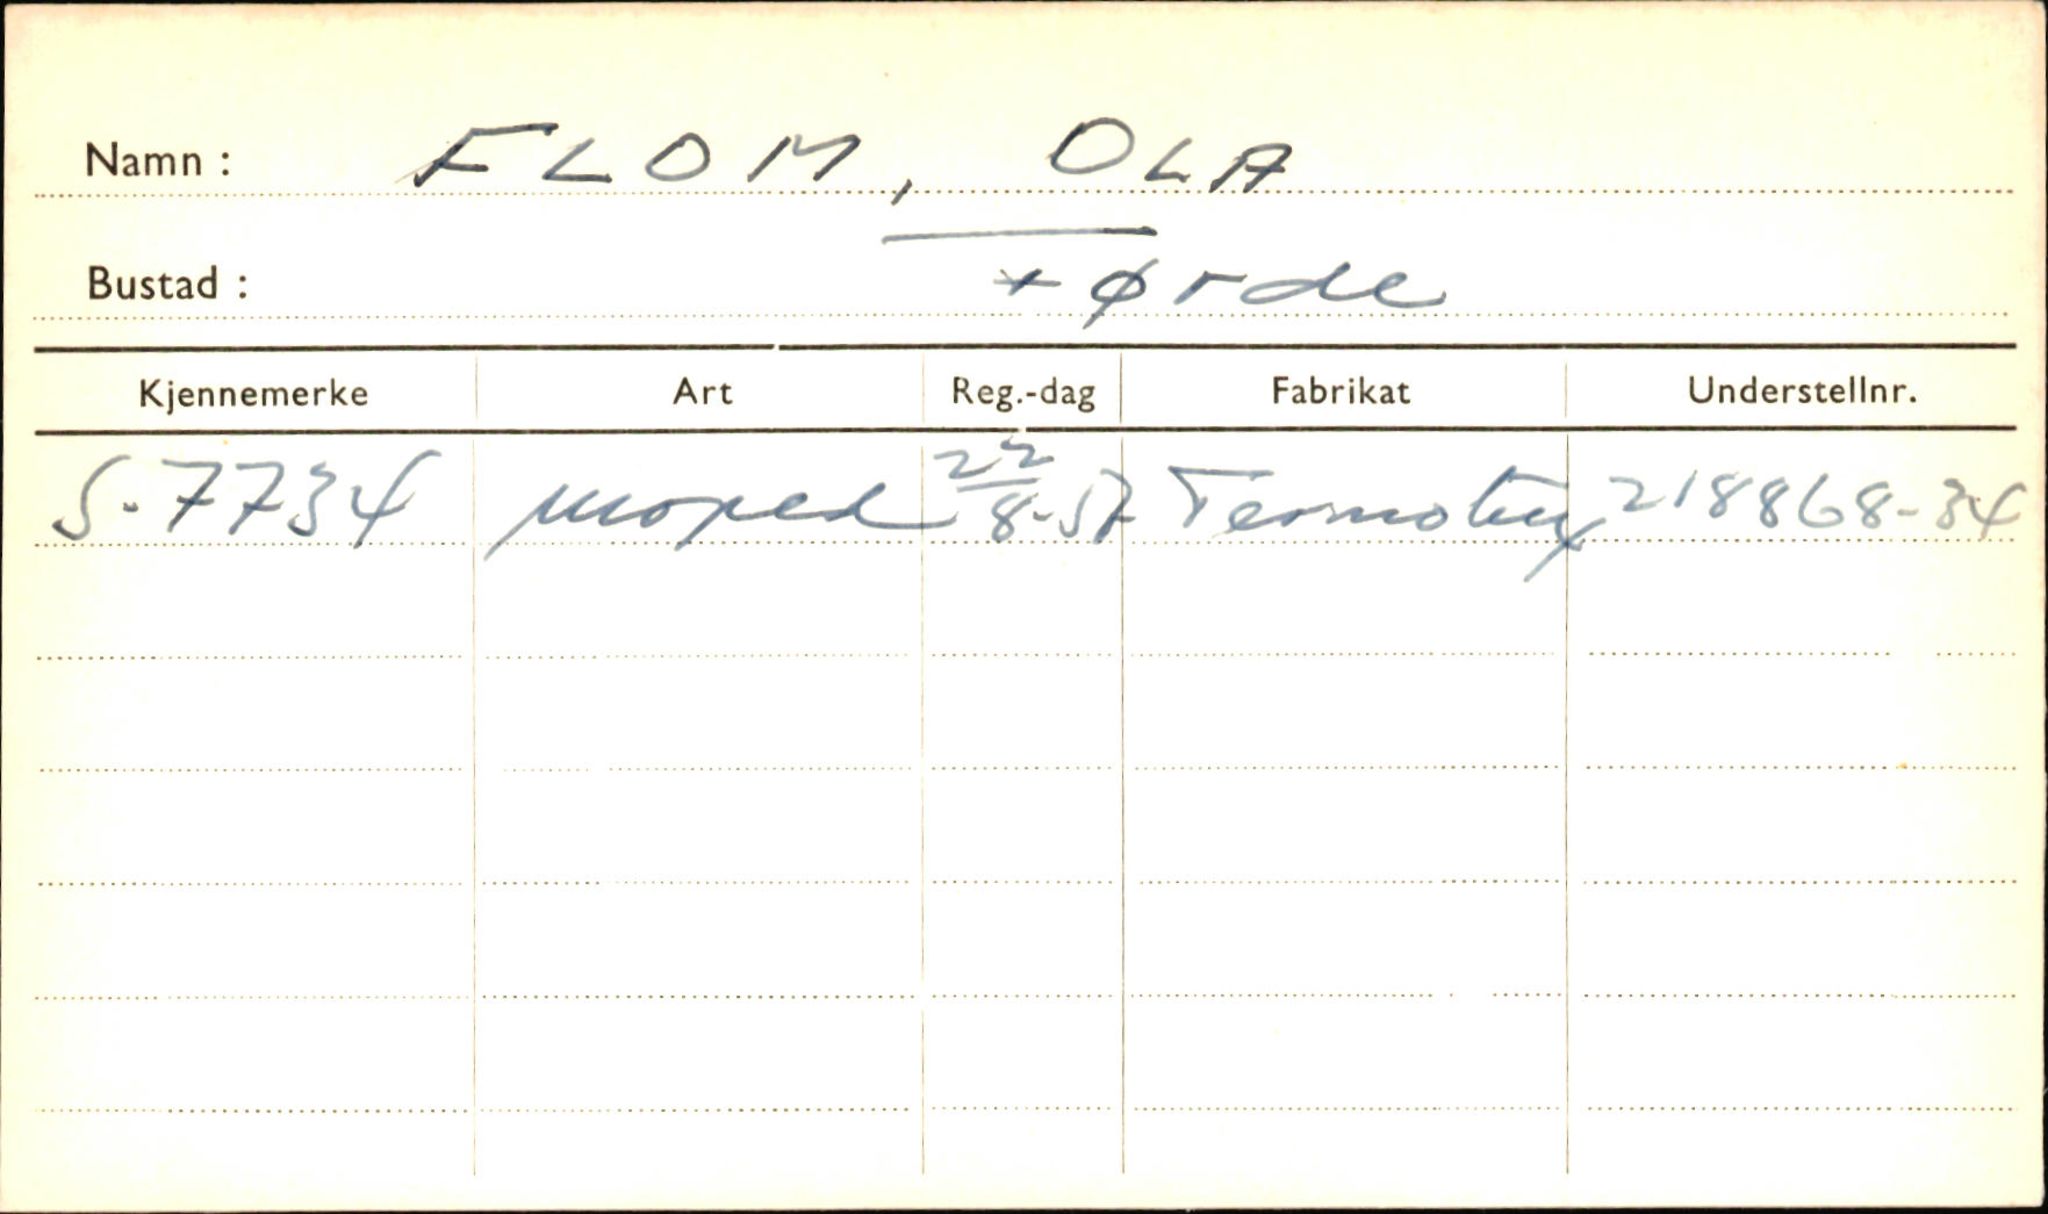 Namn : FLOM, OLA
Bustad : Førde
Kjennemerke Art Reg.-dag Fabrikat Understellnr.
S-7734 moped 22/8-57 218868-34